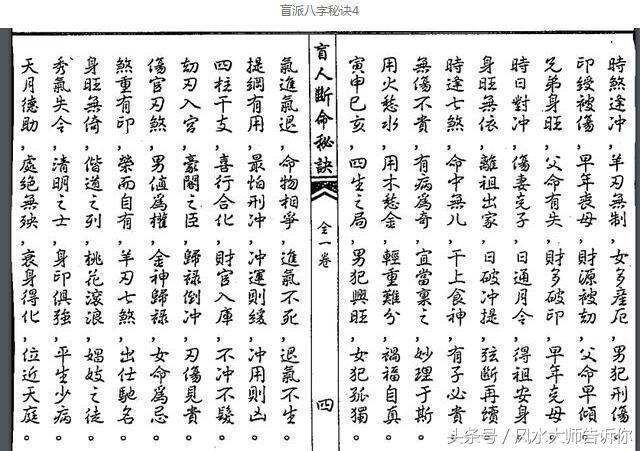 盲派八字秘诀4
時煞逢冲,羊刃無制,女多産厄,男犯刑傷。
印綬被傷,早年喪母,財源被劫,父命早傾。
兄弟身旺,父命有失,財多破印,早年尅母。
時日對冲,傷妻尅子,日通月令,得祖安身。
身旺無依,離祖出家,日破冲提,弦斷再續。
時逢七煞,命中無兒,干上食神,有子必貴。
無傷不貴,有病爲奇,宜當禀之,妙理于斯。
用火愁水,用木愁金,輕重難分,禍福自真。
寅申巳亥,四生之局,男犯興旺,女犯孤獨。
盲人斷命秘訣 全一卷 四
氣進氣退,命物相爭,進氣不死,退氣不生。
提綱有用,最怕刑冲,冲運則緩,冲用則凶。
四柱干支,喜行合化,財官入庫,不冲不發。
劫刃入宮,豪閣之臣,歸禄倒冲,刃傷見貴。
傷官刃煞,男值爲權,金神歸禄,女命爲忌。
煞重有印,榮而自有,羊刃七煞,出仕馳名。
身旺無倚,偕道之列,桃花滚浪,娼妓之徒。
秀氣失令,清明之士,身印俱強,平生少病。
天月德助,處絕無殃,衰身得化,位近天庭。
头条号/风水大师告诉你